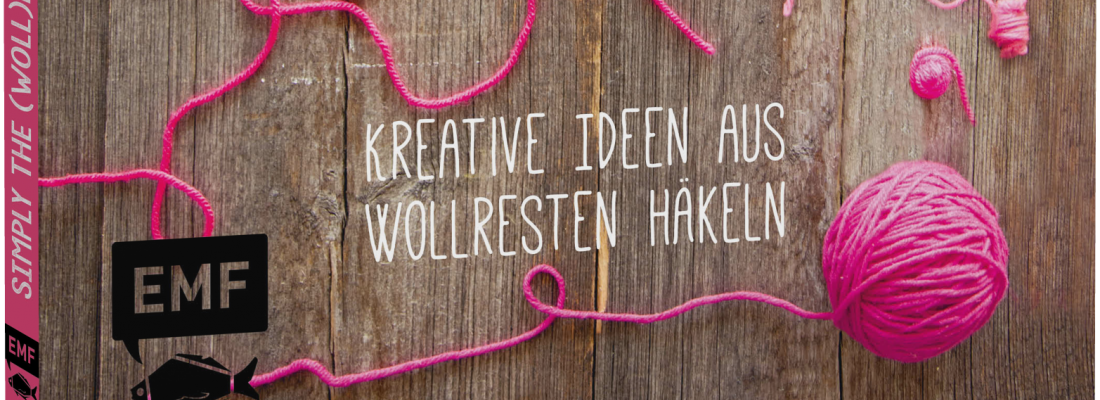 SIMPLY THE (WOLL)
KREATIVE IDEEN AUS
WOLLRESTEN HÄKELN
EMF
EMF